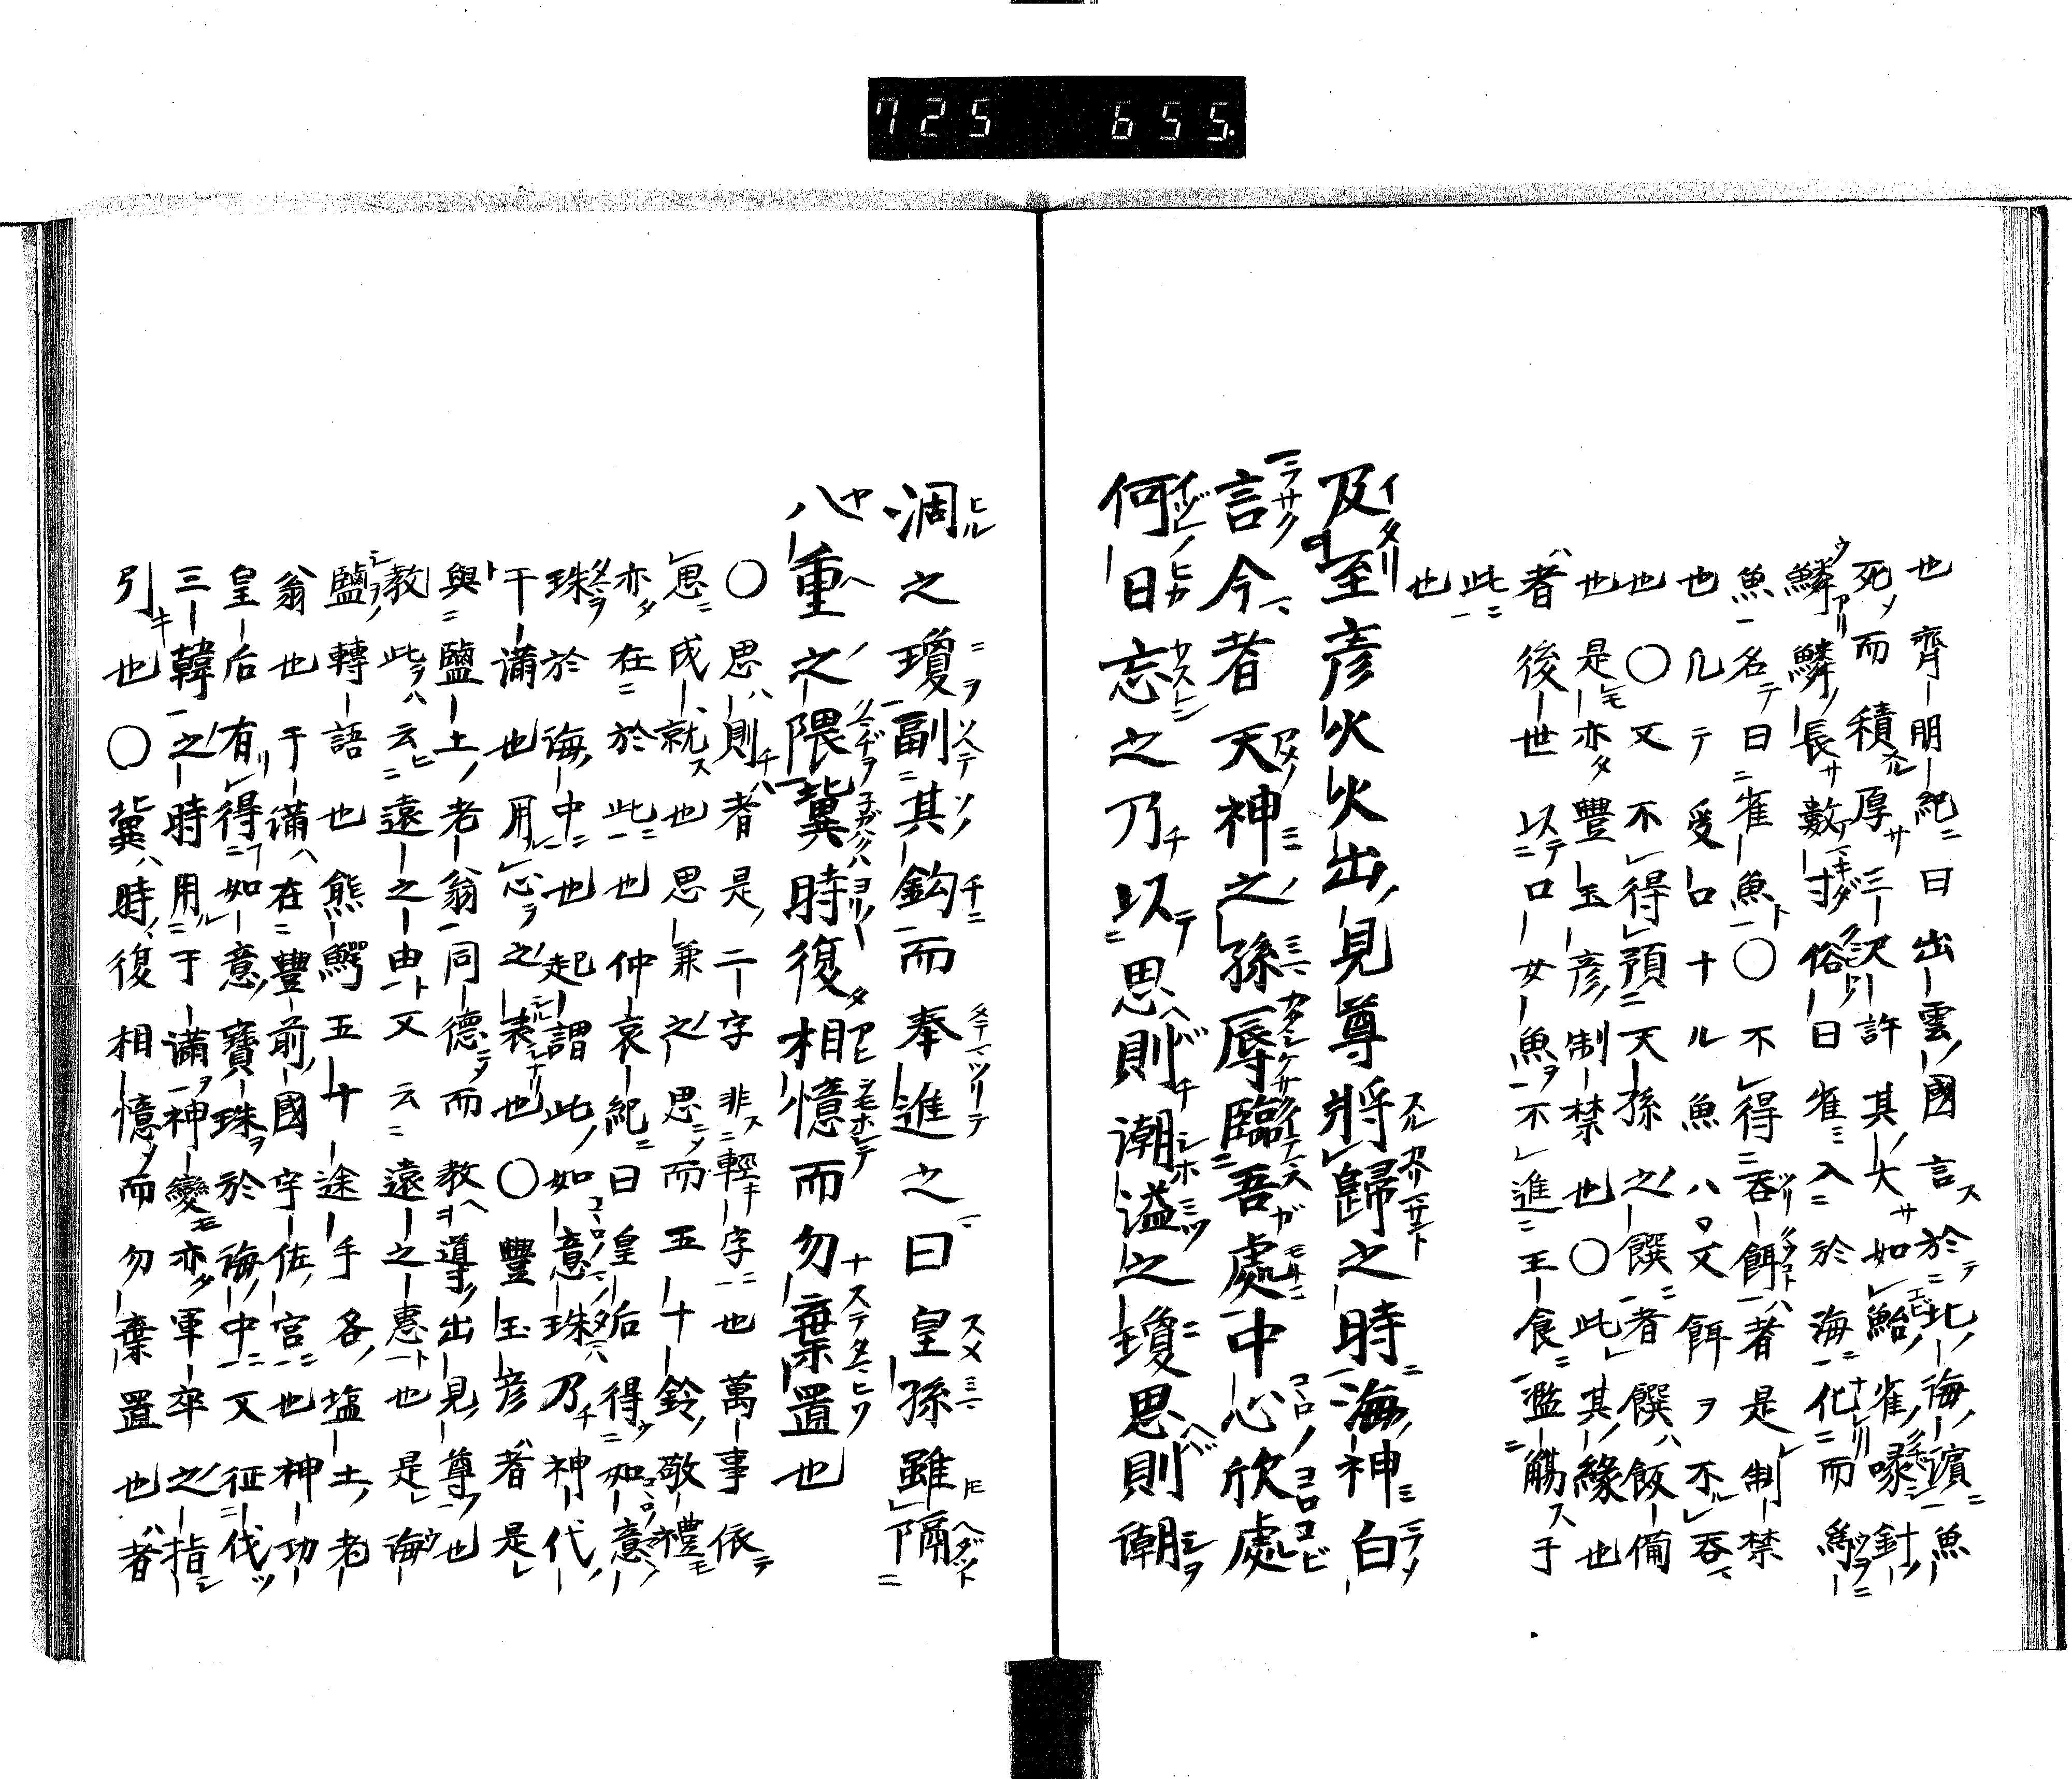 725 655.
也齊明紀曰出雲國言於北海濱魚
死而積厚三尺許其大如鮐雀喙針
鱗鱗長數寸俗曰雀入於海化而為
魚名曰雀魚○不得吞餌者是制禁
也凡テ受口十ル魚ハロ又餌ヲ不吞
也○又不得預天孫之饌者饌飯備
也是亦豐玉彥制禁也○此其緣也
者後世以口女魚不進王食濫觴于
此
也
及至彥火火出見尊將歸之時海神白
言今者天神之孫辱臨吾處中心欣處
何日忘之乃以思則潮溢之瓊思則潮
涸之瓊副其鈎而奉進之曰皇孫雖隔
八重之隈冀時復相憶而勿棄置也
○思則者是二字非輕字也萬事依
思成就也思兼之思而五十鈴敬禮
亦在於此也仲哀紀曰皇后得如意
珠於海中也起謂此如意珠乃神代
干滿也用心之表也○豐玉彥者是
與鹽土老翁同德而教導出見尊也
教此云遠之由又云遠之惠也是海
鹽轉語也熊鰐五十途手各塩土老
翁也干滿在豐前國宇佐宮也神功
皇后有得如意寶珠於海中又征伐
三韓之時用干滿神變亦軍卒之指
引也○冀時復相憶而勿棄置也者